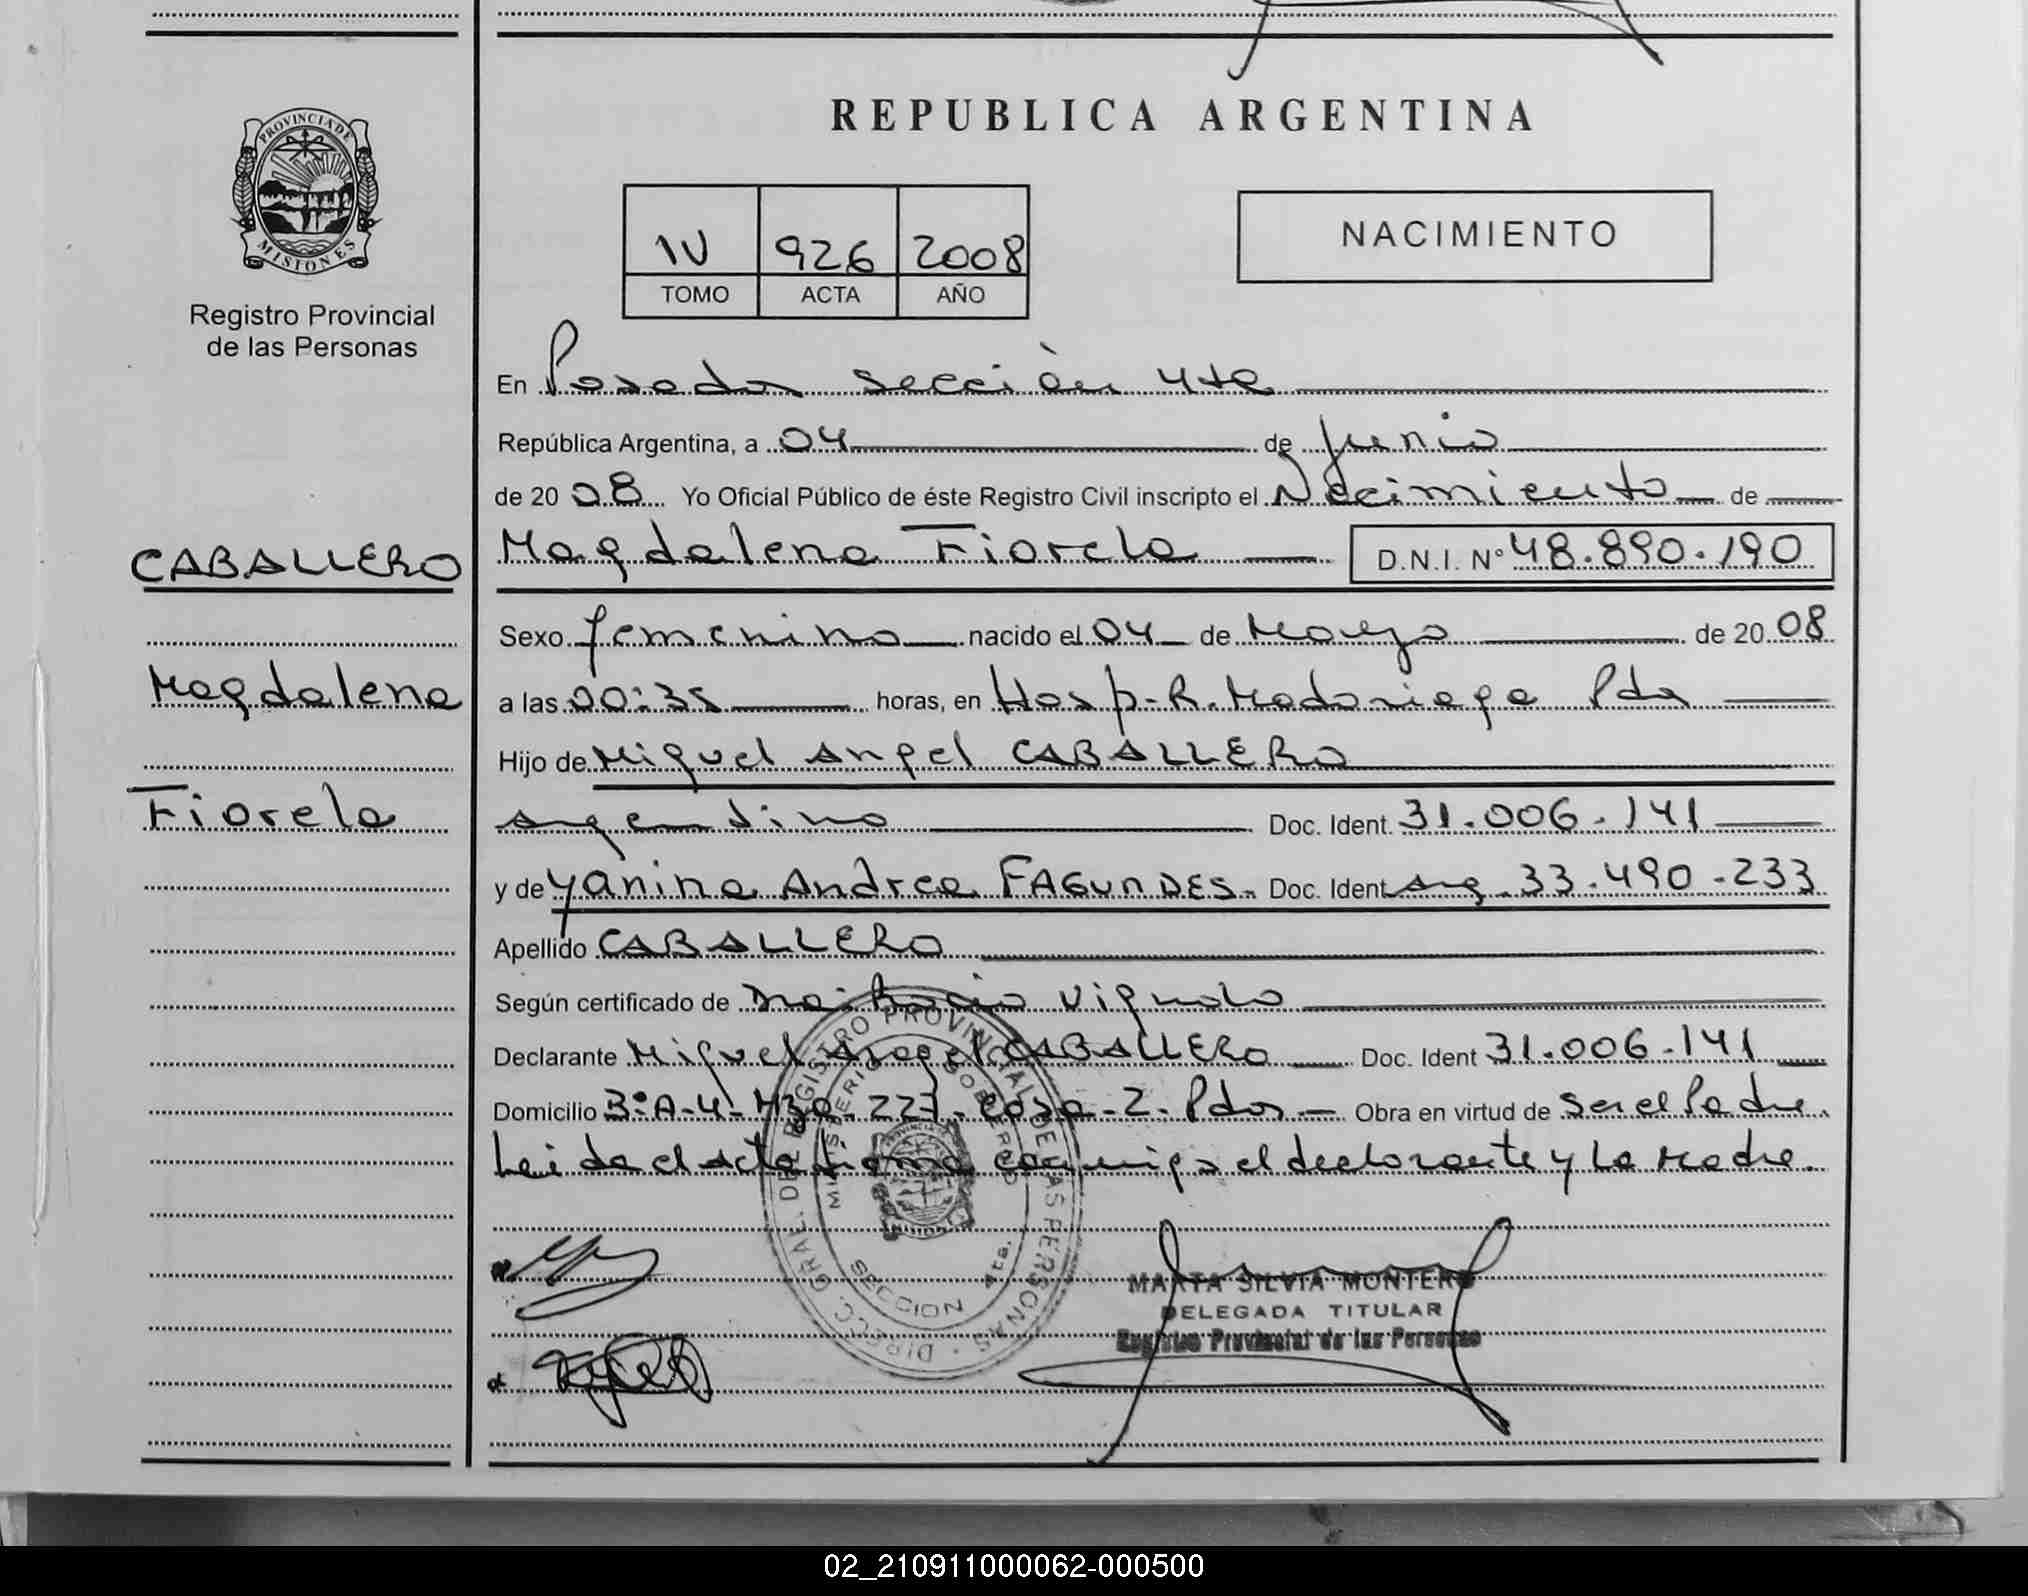 REPUBLICA ARGENTINA
PROVINCIA DE
MISIONES
Registro Provincial
de las Personas
IV 926 2008
TOMO ACTA AÑO
NACIMIENTO
En Posadas sección 4ta
República Argentina, a 04 de Junio
de 20 08 Yo Oficial Público de éste Registro Civil inscripto el Nacimiento de
CABALLERO
Magdalena Fiorela D.N.I. N° 48.890.190
Sexo femenino nacido el 04 de Mayo de 20 08
Magdalena
a las 00:35 horas, en Hosp. R. Madariaga Pdas
Hijo de Miguel Angel CABALLERO
Fiorela
argentino Doc. Ident. 31.006.141
y de Yanina Andrea FAGUNDES. Doc. Ident Arg. 33.490.233
Apellido CABALLERO
Según certificado de Dra: Rocio Vignolo
Declarante Miguel Angel CABALLERO Doc. Ident 31.006.141
Domicilio 3°A-4-Mza-227-Casa-2-Pdas Obra en virtud de Ser el Padre.
Leida el acta firma conmigo el declarante y La Madre.
DIRECC. GRAL. DEL REGISTRO PROVINCIAL DE LAS PERSONAS
MINISTERIO GOBIERNO
PROVINCIA DE
MISIONES
SECCION 4ta.
MARTA SILVIA MONTERO
DELEGADA TITULAR
Registro Provincial de las Personas
02_210911000062-000500